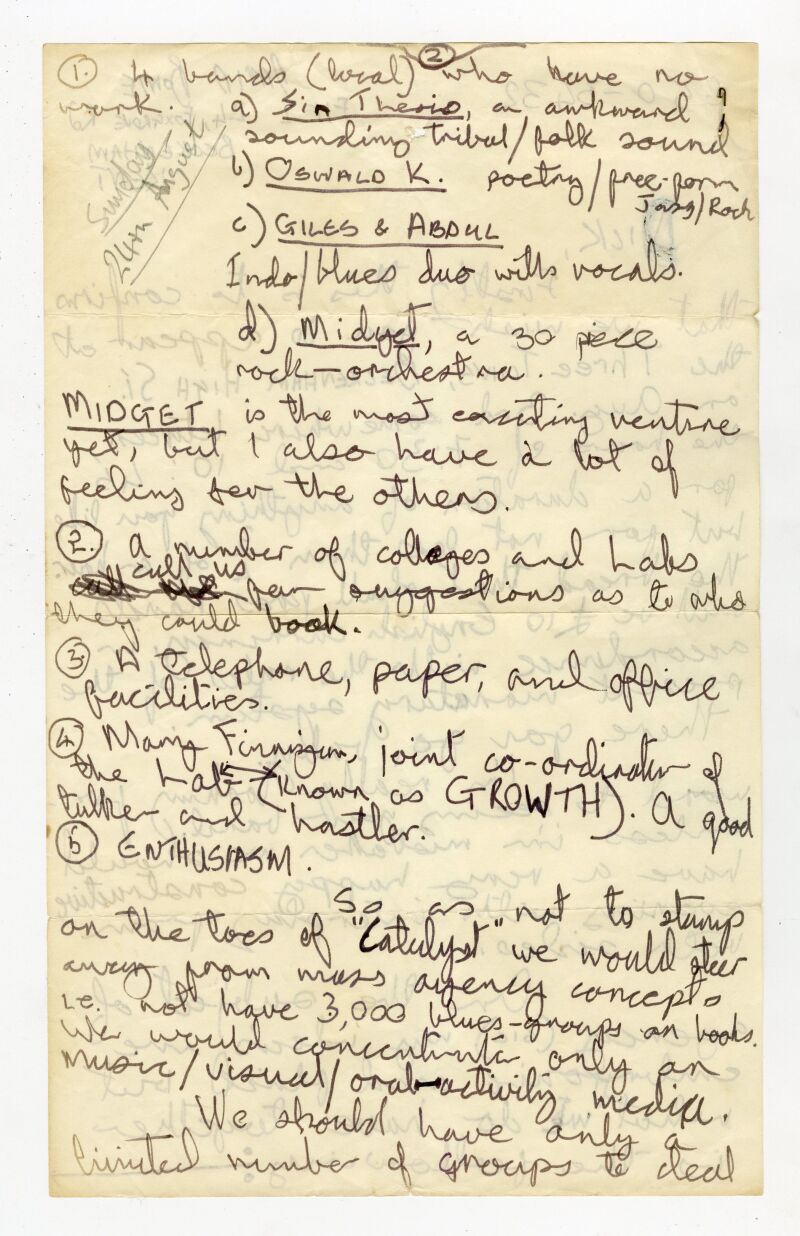 ②
①. 4 bands (local) who have no
work. a) Sin Thesis, an awkward
sounding tribal/folk sound
b) OSWALD K. poetry/free-form
Jazz/Rock
c) GILES & ABDUL
Indo/blues duo with vocals.
d) Midget, a 30 piece
rock-orchestra.
Sunday
24th August
MIDGET is the most exciting venture
yet, but I also have a lot of
feeling for the others.
②. A number of colleges and Labs
call us for suggestions as to who
they could book.
③. A telephone, paper, and office
facilities.
④ Mary Finnigan, joint co-ordinator of
the Lab (known as GROWTH). A good
talker and hustler.
⑤ ENTHUSIASM.
So as not to stamp
on the toes of "Catalyst" we would steer
away from mass agency concepts
i.e. not have 3,000 blues-groups on books.
We would concentrate only on
music/visual/oral activity media.
We should have only a
limited number of groups to deal